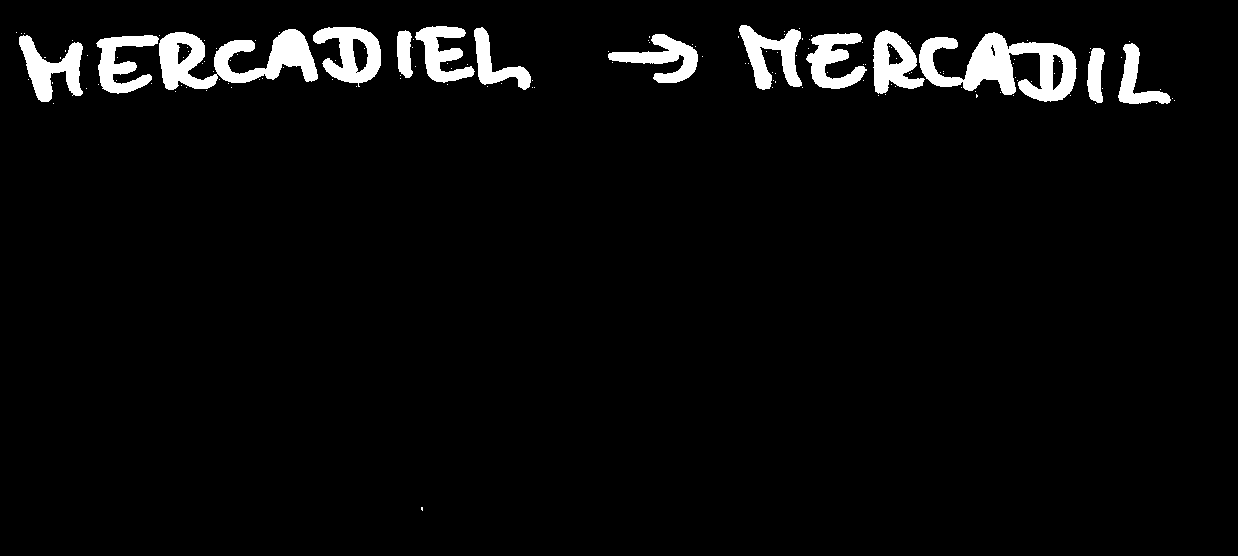 MERCADIEL → MERCADIL